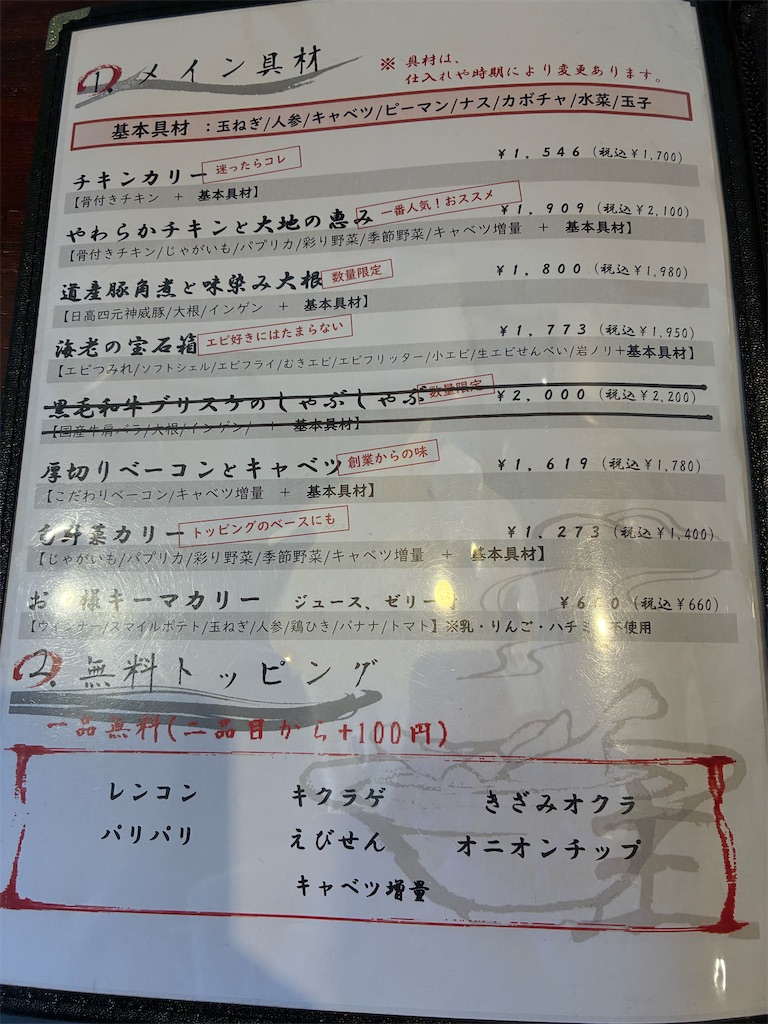 1. メイン具材
※ 具材は、
仕入れや時期により変更あります。
基本具材 ：玉ねぎ/人参/キャベツ/ピーマン/ナス/カボチャ/水菜/玉子
チキンカリー 迷ったらコレ ¥1,546 (税込¥1,700)
【骨付きチキン ＋ 基本具材】
やわらかチキンと大地の恵み 一番人気！おススメ ¥1,909 (税込¥2,100)
【骨付きチキン/じゃがいも/パプリカ/彩り野菜/季節野菜/キャベツ増量 ＋ 基本具材】
道産豚角煮と味染み大根 数量限定 ¥1,800 (税込¥1,980)
【日高四元神威豚/大根/インゲン ＋ 基本具材】
海老の宝石箱 エビ好きにはたまらない ¥1,773 (税込¥1,950)
【エビつみれ/ソフトシェル/エビフライ/むきエビ/エビフリッター/小エビ/生エビせんべい/岩ノリ+基本具材】
黒毛和牛ブリスケのしゃぶしゃぶ 数量限定 ¥2,000 (税込¥2,200)
【国産牛肩バラ/大根/インゲン/ ＋ 基本具材】
厚切りベーコンとキャベツ 創業からの味 ¥1,619 (税込¥1,780)
【こだわりベーコン/キャベツ増量 ＋ 基本具材】
菜カリー トッピングのベースにも ¥1,273 (税込¥1,400)
【じゃがいも/パプリカ/彩り野菜/季節野菜/キャベツ増量 ＋ 基本具材】
お 様キーマカリー ジュース、ゼリー (税込¥660)
【ウインナー/スマイルポテト/玉ねぎ/人参/鶏ひき/バナナ/トマト】※乳・りんご・ハチミ 不使用
2. 無料トッピング
一品無料(二品目から+100円)
レンコン キクラゲ きざみオクラ
パリパリ えびせん オニオンチップ
キャベツ増量